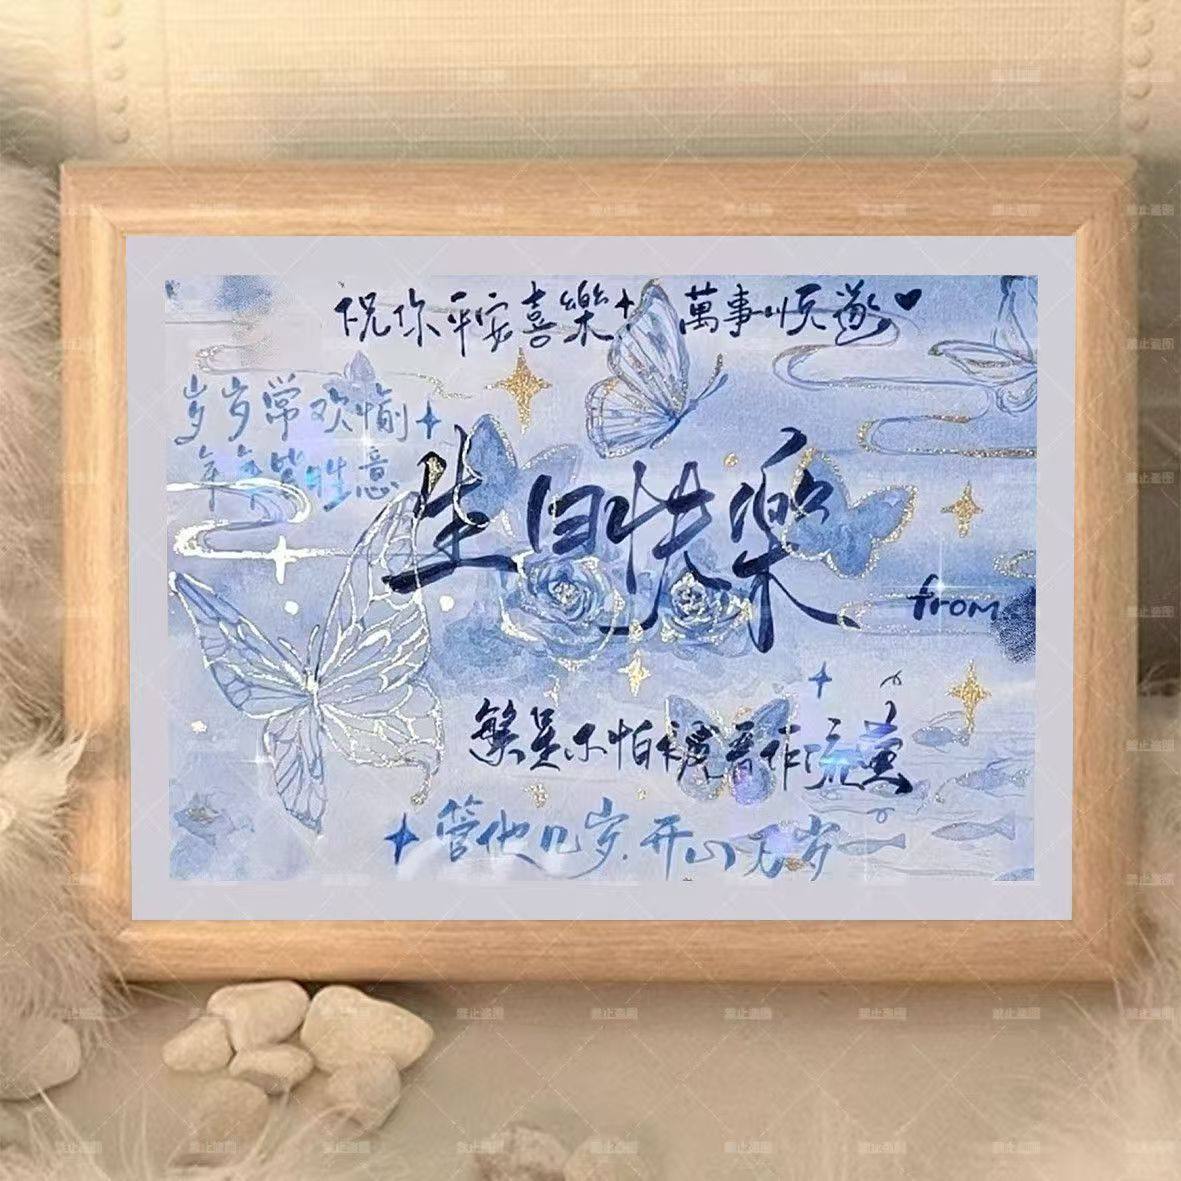 祝你平安喜樂 萬事順遂
岁岁常欢愉
年年皆胜意
生日快樂
from.
繁星不怕被看作流萤
管他几岁.开心万岁
禁止盗图